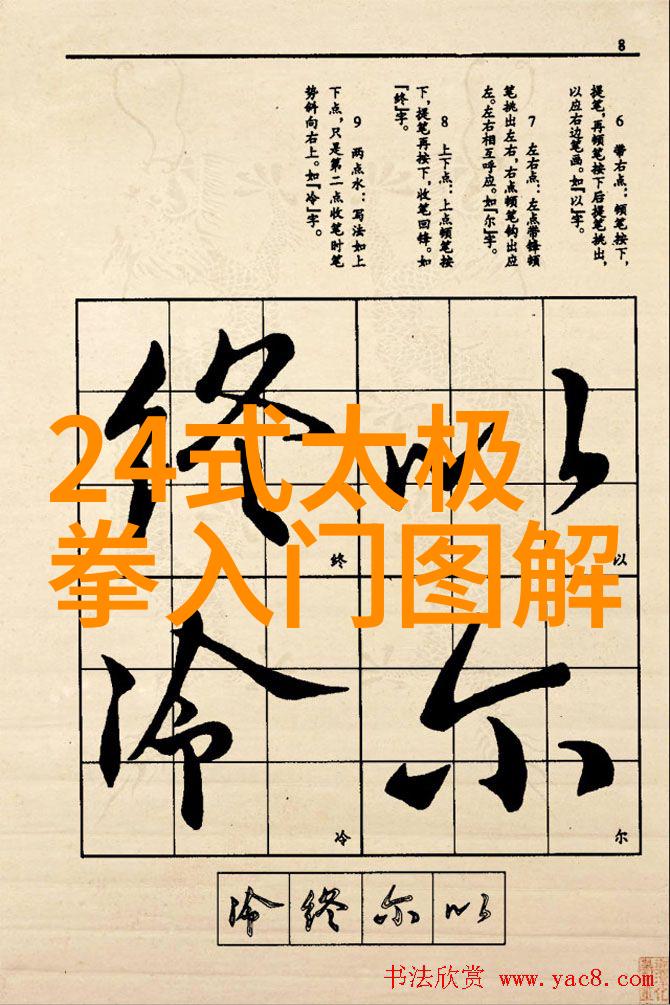 8
6 带右点：顿笔按下，
提笔，再顿笔按下后提笔挑出，
以应右边笔画。如“以”字。
7 左右点：左点带锋顿
笔挑出左右，右点顿笔钩出应
左。左右相互呼应。如“尔”字。
8 上下点：上点顿笔按
下，提笔再按下，收笔回锋。如
“终”字。
9 两点水：写法如上
下点，只是第二点收笔时笔
势斜向右上。如“冷”字。
24式太极
拳入门图解
以
尔
终
冷
以
尔
终
冷
冷 终 尔 以
书法欣赏 www.yac8.com